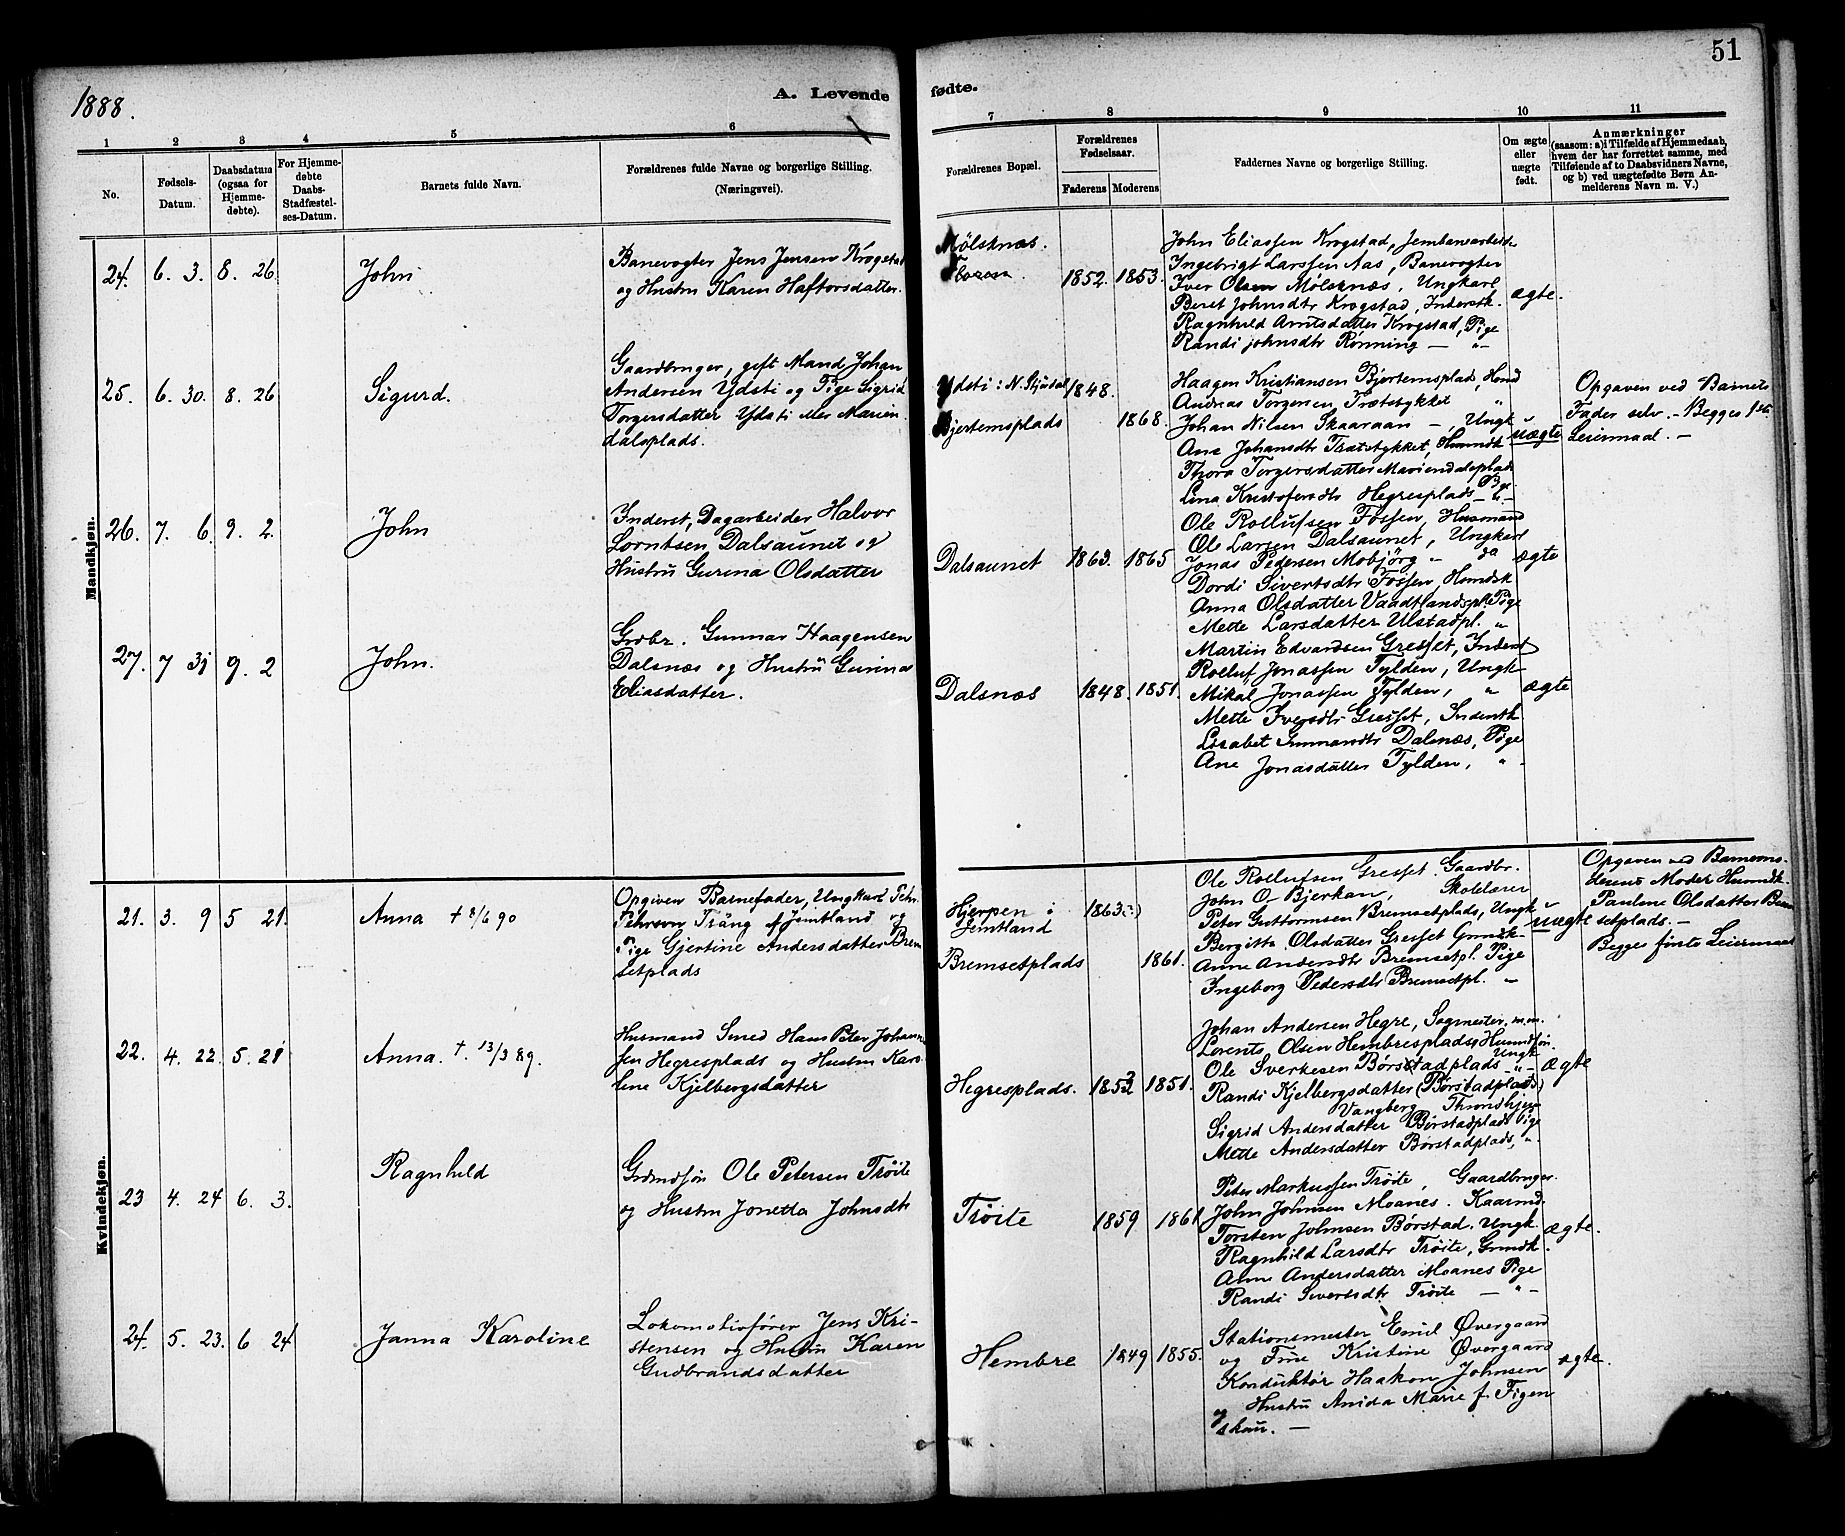 1888.
A. Levende fødte.
51
1 2 3 4 5 6 7 8 9 10 11
No.
Fødsels-
Datum.
Daabsdatum
(ogsaa for
Hjemme-
døbte).
For Hjemme-
døbte
Daabs-
Stadfæstel-
ses-Datum.
Barnets fulde Navn.
Forældrenes fulde Navne og borgerlige Stilling.
(Næringsvei).
Forældrenes Bopæl.
Forældrenes
Fødselsaar.
Faderens Moderens
Faddernes Navne og borgerlige Stilling.
Om ægte
eller
uægte
født.
Anmærkninger
(saasom: a) i Tilfælde af Hjemmedaab,
hvem der har forrettet samme, med
Tilføiende af to Daabsvidners Navne,
og b) ved uægtefødte Børn An-
melderens Navn m. V.)
Mandkjøn.
24. 6. 3. 8. 26. John
Banevogter Jens Jensen Krogstad
og Hustru Karen Haftorsdatter.
Mølsknæs.
1852. 1853.
John Eliassen Krogstad, Jernbanearbeid.
Ingebrigt Larssen Aas, Banevogter
Iver Olsen Mølsknæs, Ungkarl
Beret Johnsdtr Krogstad, Inderstk.
Ragnhild Arntsdatter Krogstad, Pige
Randi Johnsdtr Rønning — „
ægte.
25. 6. 30. 8. 26 Sigurd.
Gaardbruger, gift Mand Johan
Andersen Ydsti og Pige Sigrid
Torgersdatter Ydsti eller Marien
dalsplads.
Ydsti: N. Stjørdal 1848.
Bjertemsplads 1868.
Haagen Kristiansen Bjertemsplads, Hmd
Andreas Torgersen Trætstykket „
Johan Nilsen Skaaraan —, Ungk
Ane Johansdtr Trætstykket, Husmdk
Thora Torgersdatter Mariendalsplads
Lina Kristofersdtr Hegresplads Pige
uægte
Opgaven ved Barnets
Fader selv. – Begges 1ste
Leiermaal. –
26. 7. 6. 9. 2. John
Inderst, Dagarbeider Halvor
Lorntsen Dalsaunet og
Hustru Gurina Olsdatter
Dalsaunet 1863. 1865
Ole Rollufsen Fossen, Husmand
Ole Larsen Dalsaunet, Ungkarl
Jonas Pedersen Mobjørg „ do
Dordi Sivertsdtr Fossen, Husmdsk
Anna Olsdatter Vaadtlandspl. Pige
Mette Larsdatter Ulstadpl. „
ægte
27. 7 31 9. 2 John.
Grdbr. Gunnar Haagensen
Dalsnæs og Hustru Gurina
Eliasdatter.
Dalsnæs 1848. 1851.
Martin Edvardsen Gresset, Inderst
Rolluf Jonassen Tylden, Ungk
Mikal Jonassen Tylden, „
Mette Iversdtr Gresset, Inderstk
Lisabet Gunnarsdtr Dalsnæs, Pige
Ane Jonasdatter Tylden, „
ægte
Kvindekjøn.
21. 3. 9 5 21. Anna † 8/6 90
Opgiven Barnefader, Ungkarl Pehr
Pehrson Trång af Jemtland og
Pige Gjertine Andersdatter Brem
setplads
Hjerpen i
Jemtland
1863
Bremsetplads 1861.
Ole Rollufsen Gresset. Gaardbr.
John O. Bjerkan, Skolelærer
Peter Guttormsen Bremsetplads, Ungk
Bergitta Olsdatter Gresset Grmdk.
Anne Andersdtr Bremsetpl. Pige
Ingeborg Pedersdtr Bremsetpl. „
uægte
Opgaven ved Barnemo-
derens Moder Husmdk.
Pauline Olsdatter Brem
setplads. –
Begges første Leiermaal
22. 4. 22. 5. 21 Anna. †. 13/3 89.
Husmand Smed Hans Peter Johann
sen Hegresplads og Hustru Karo-
line Kjelbergsdatter
Hegresplads. 1852 1851.
Johan Andersen Hegre, Sagmester, m.m.
Lorents Olsen Hembresplads, Husmdsøn.
Ungk
Ole Sverkesen Børstadplads „
Randi Kjelbergsdatter (Børstadplads)
Vangberg Throndhjem
Sigrid Andersdatter Børstadplads Pige
Mette Andersdatter Børstadplads, „
ægte
23 4. 24 6. 3. Ragnhild
Grdmdsøn Ole Petersen Trøite
og Hustru Jonetta Johnsdtr
Trøite 1859 1861
Peter Markussen Trøite, Gaardbruger.
John Johnsen Moanes. Kaarmd.
Torsten Johnsen Børstad. Ungk.
Ragnhild Larsdtr Trøite, Grmdk.
Anne Andersdatter Moanes Pige
Randi Sivertsdtr Trøite — „
ægte.
24. 5. 23. 6 24 Janna Karoline
Lokomotivfører Jens Kri-
stensen og Hustru Karen
Gudbrandsdatter
Hembre 1849 1855.
Stationsmester Emil Øvergaard
og Frue Kristine Øvergaard
Konduktør Haakon Johnsen
og Hustru Anida Marie f. Figen
skau. —
ægte.